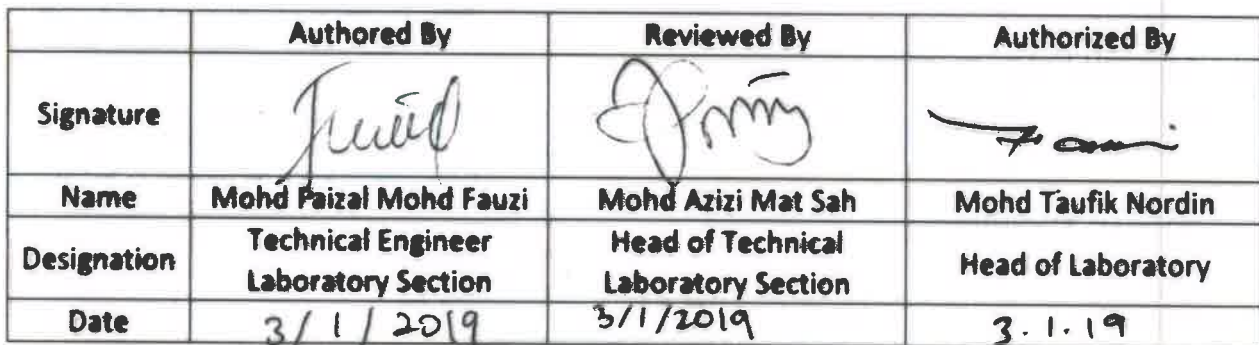 Authored By Reviewed By Authorized By
Signature
Name Mohd Paizal Mohd Fauzi Mohd Azizi Mat Sah Mohd Taufik Nordin
Designation Technical Engineer Head of Technical Head of Laboratory
Laboratory Section Laboratory Section
Date 3/1/2019 3/1/2019 3.1.19